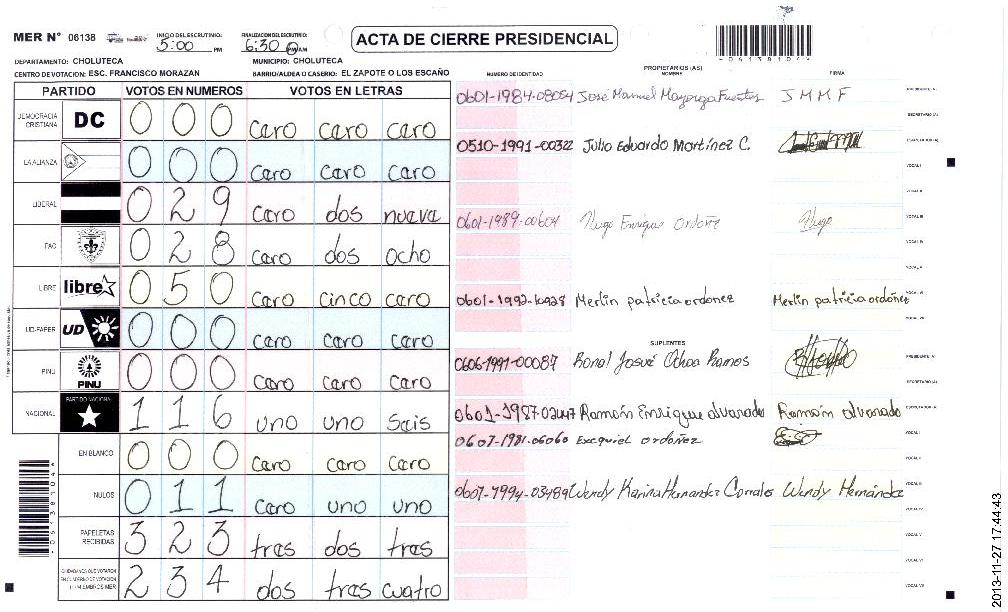 MER N° 06138 INICIO DEL ESCRUTINIO: 5:00 PM FINALIZACION DEL ESCRUTINIO: 6:30 PM AM ACTA DE CIERRE PRESIDENCIAL
DEPARTAMENTO: CHOLUTECA MUNICIPIO: CHOLUTECA
CENTRO DE VOTACION: ESC. FRANCISCO MORAZAN BARRIO/ALDEA O CASERIO: EL ZAPOTE O LOS ESCAÑO
PARTIDO VOTOS EN NUMEROS VOTOS EN LETRAS
DEMOCRACIA CRISTIANA DC 0 0 0 Caro Caro Caro
LA ALIANZA 0 0 0 Caro Caro Caro
LIBERAL 0 2 9 Caro dos nueva
PAC 0 2 8 Caro dos Ocho
LIBRE libre 0 5 0 Caro Cinco Caro
UD-FAPER UD 0 0 0 Caro Caro Caro
PINU PINU 0 0 0 Caro Caro Caro
NACIONAL PARTIDO NACIONAL 1 1 6 uno uno Sais
EN BLANCO 0 0 0 Caro Caro Caro
NULOS 0 1 1 Caro uno uno
PAPELETAS RECIBIDAS 3 2 3 tras dos tras
CIUDADANOS QUE VOTARON EN CUADERNO DE VOTACION 2 3 4 dos tras cuatro
PROPIETARIOS (AS)
NUMERO DE IDENTIDAD NOMBRE FIRMA
0601-1984-08054 José Manuel Mayorga Fuentes J M M F PRESIDENTE (A)
SECRETARIO (A)
0510-1991-00322 Julio Eduardo Martínez C. ESCRUTADOR (A)
VOCAL I
VOCAL II
0601-1989-00604 Hugo Enrique Ordoñe Hugo VOCAL III
VOCAL IV
VOCAL V
0601-1992-10928 Merlin patricia ordoñez Merlin patricia ordoñez
SUPLENTES
0606-1991-00087 Ronal Josué Ochoa Ramos PRESIDENTE (A)
SECRETARIO (A)
Ramón Enrique alvarado Ramón alvarado ESCRUTADOR (A)
0607-1981-06060 Exequiel ordoñez VOCAL I
VOCAL II
0607-1994-03489 Wendy Karina Hernandez Corrales Wendy Hernández VOCAL III
VOCAL IV
VOCAL V
VOCAL VI
VOCAL VII
2013-11-27 17:44:43